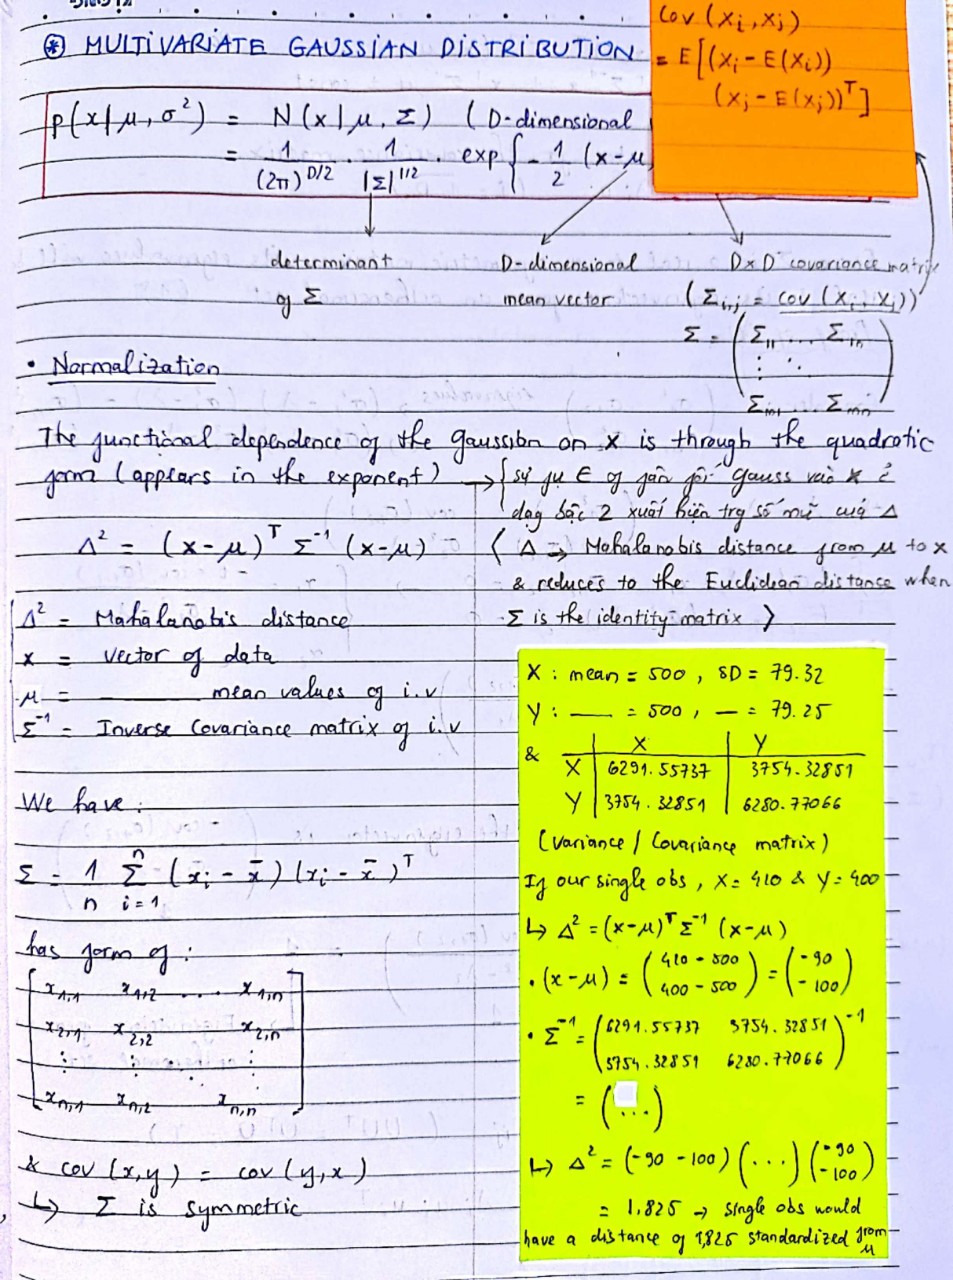 Cov (Xi, Xj)
= E[(Xi - E(Xi))
(Xj - E(Xj))ᵀ]
⊛ MULTIVARIATE GAUSSIAN DISTRIBUTION
p(x|μ, σ²) = N(x|μ, Σ) (D-dimensional
= 1/(2π)^D/2 . 1/|Σ|^1/2 . exp{ - 1/2 (x-μ
determinant of Σ
D-dimensional mean vector
DxD covariance matrix
(Σi,j = cov (Xi, Xj))
Σ = ( Σ11 ... Σ1n
⋮ ⋱
Σm1 . Σmn )
• Normalization
The functional dependence of the Gaussian on x is through the quadratic
form (appears in the exponent) → { sự fụ ∈ of fân fối Gauss vào x ở
dạg bậc 2 xuất hiện trg số mũ của Δ
Δ² = (x-μ)ᵀ Σ⁻¹ (x-μ) ( Δ ⇒ Mahalanobis distance from μ to x
& reduces to the Euclidean distance when
Σ is the identity matrix }
Δ² = Mahalanobis distance
x = vector of data
μ = ——— mean values of i.v
Σ⁻¹ = Inverse Covariance matrix of i.v
We have :
Σ = 1/n Σ i=1 n (x̄i - x̄) (xi - x̄)ᵀ
has form of :
[ x1,1 x1,2 .... x1,n
x2,1 x2,2 x2,n
⋮ ⋮ ⋱ ⋮
xn,1 xn,2 xn,n ]
& cov (x,y) = cov (y,x)
↳ Σ is symmetric
X : mean = 500 , SD = 79.32
Y : —— = 500 , — = 79.25
& X Y
X 6291.55737 3754.32851
Y 3754.32851 6280.77066
(Variance / Covariance matrix)
If our single obs , X = 410 & Y = 400
↳ Δ² = (x-μ)ᵀ Σ⁻¹ (x-μ)
• (x-μ) = (410 - 500
400 - 500) = (-90
-100)
• Σ⁻¹ = (6291.55737 3754.32851
3754.32851 6280.77066)⁻¹
= (...)
↳ Δ² = (-90 -100) (...) (-90
-100)
= 1.825 → single obs would
have a distance of 1,825 standardized from
μ